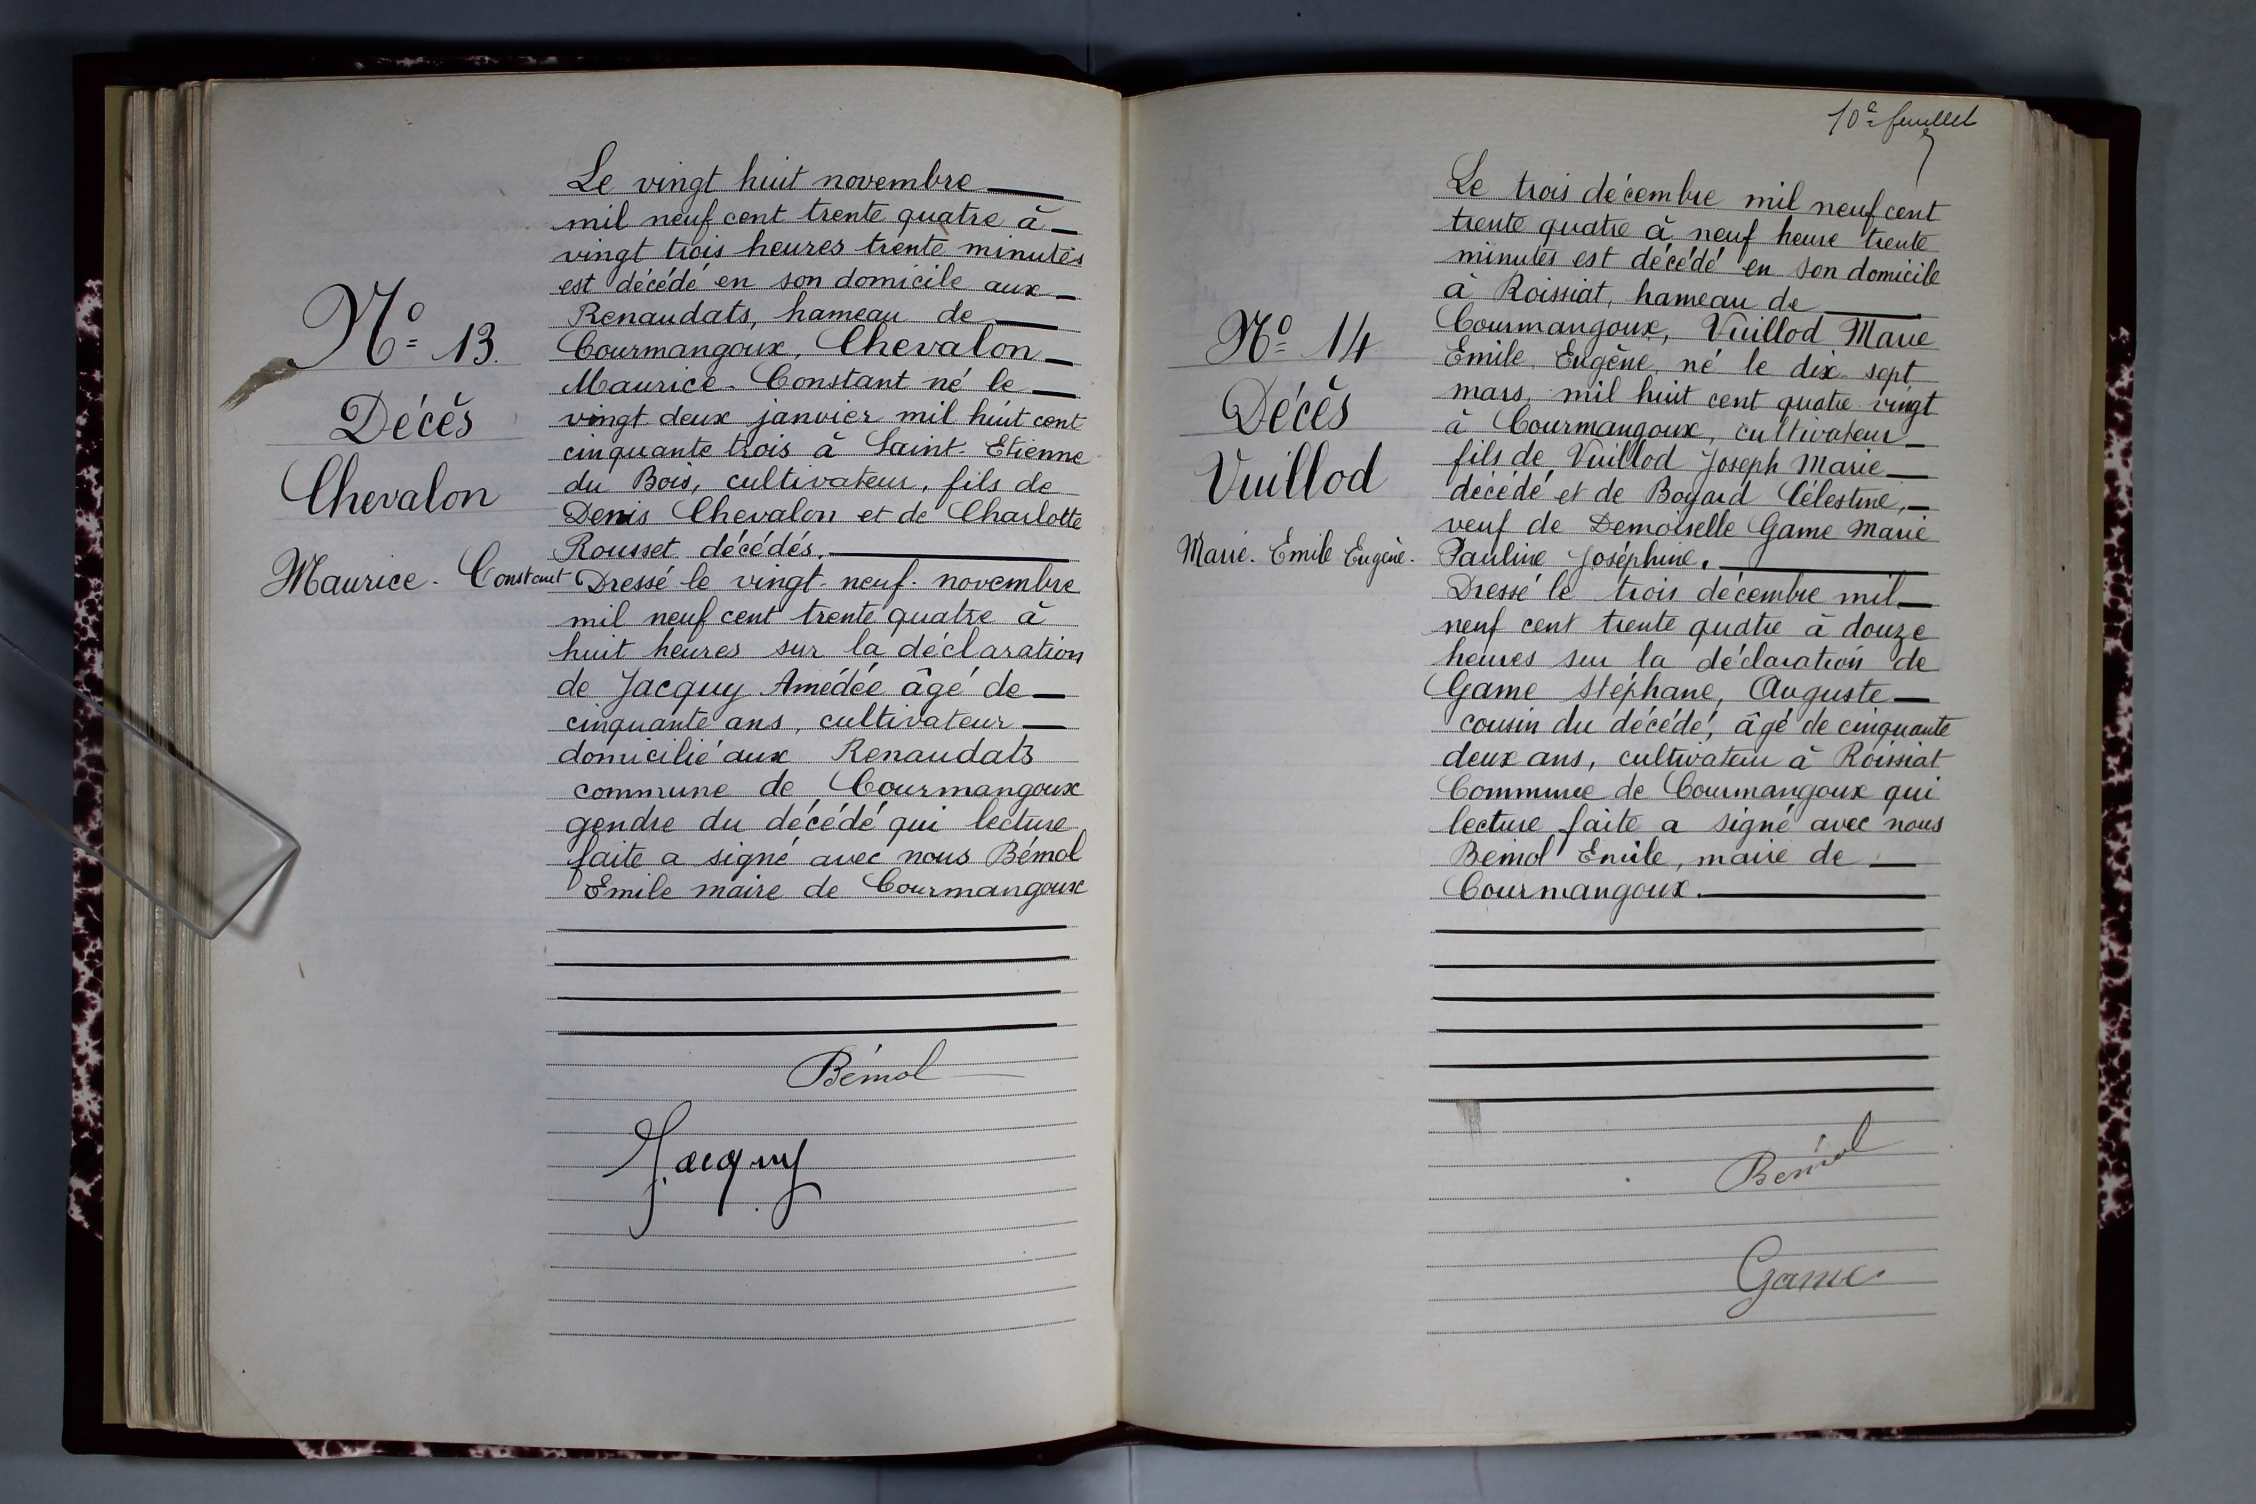 N° 13.
Décès
Chevalon
Maurice. Constant
Le vingt huit novembre
mil neuf cent trente quatre à
vingt trois heures trente minutes
est décédé en son domicile aux
Renaudats, hameau de
Courmangoux, Chevalon
Maurice. Constant né le
vingt deux janvier mil huit cent
cinquante trois à Saint-Etienne
du Bois, cultivateur, fils de
Denis Chevalon et de Charlotte
Rousset décédés.
Dressé le vingt-neuf-novembre
mil neuf cent trente quatre à
huit heures sur la déclaration
de Jacquy Amédée âgé de
cinquante ans, cultivateur
domicilié aux Renaudats
commune de Courmangoux
gendre du décédé qui lecture
faite a signé avec nous Bémol
Emile maire de Courmangoux
Bémol
Jacquy
10e feuillet
N° 14
Décès
Vuillod
Marie. Emile Eugène.
Le trois décembre mil neuf cent
trente quatre à neuf heure trente
minutes est décédé en son domicile
à Roissiat, hameau de
Courmangoux, Vuillod Marie
Emile. Eugène, né le dix-sept
mars, mil huit cent quatre-vingt
à Courmangoux, cultivateur
fils de Vuillod Joseph Marie
décédé et de Boyard Célestine,
veuf de Demoiselle Game Marie
Pauline Joséphine.
Dressé le trois décembre mil
neuf cent trente quatre à douze
heures sur la déclaration de
Game Stéphane, Auguste
cousin du décédé, âgé de cinquante
deux ans, cultivateur à Roissiat
Commune de Courmangoux qui
lecture faite a signé avec nous
Bémol Emile, maire de
Courmangoux.
Bémol
Game